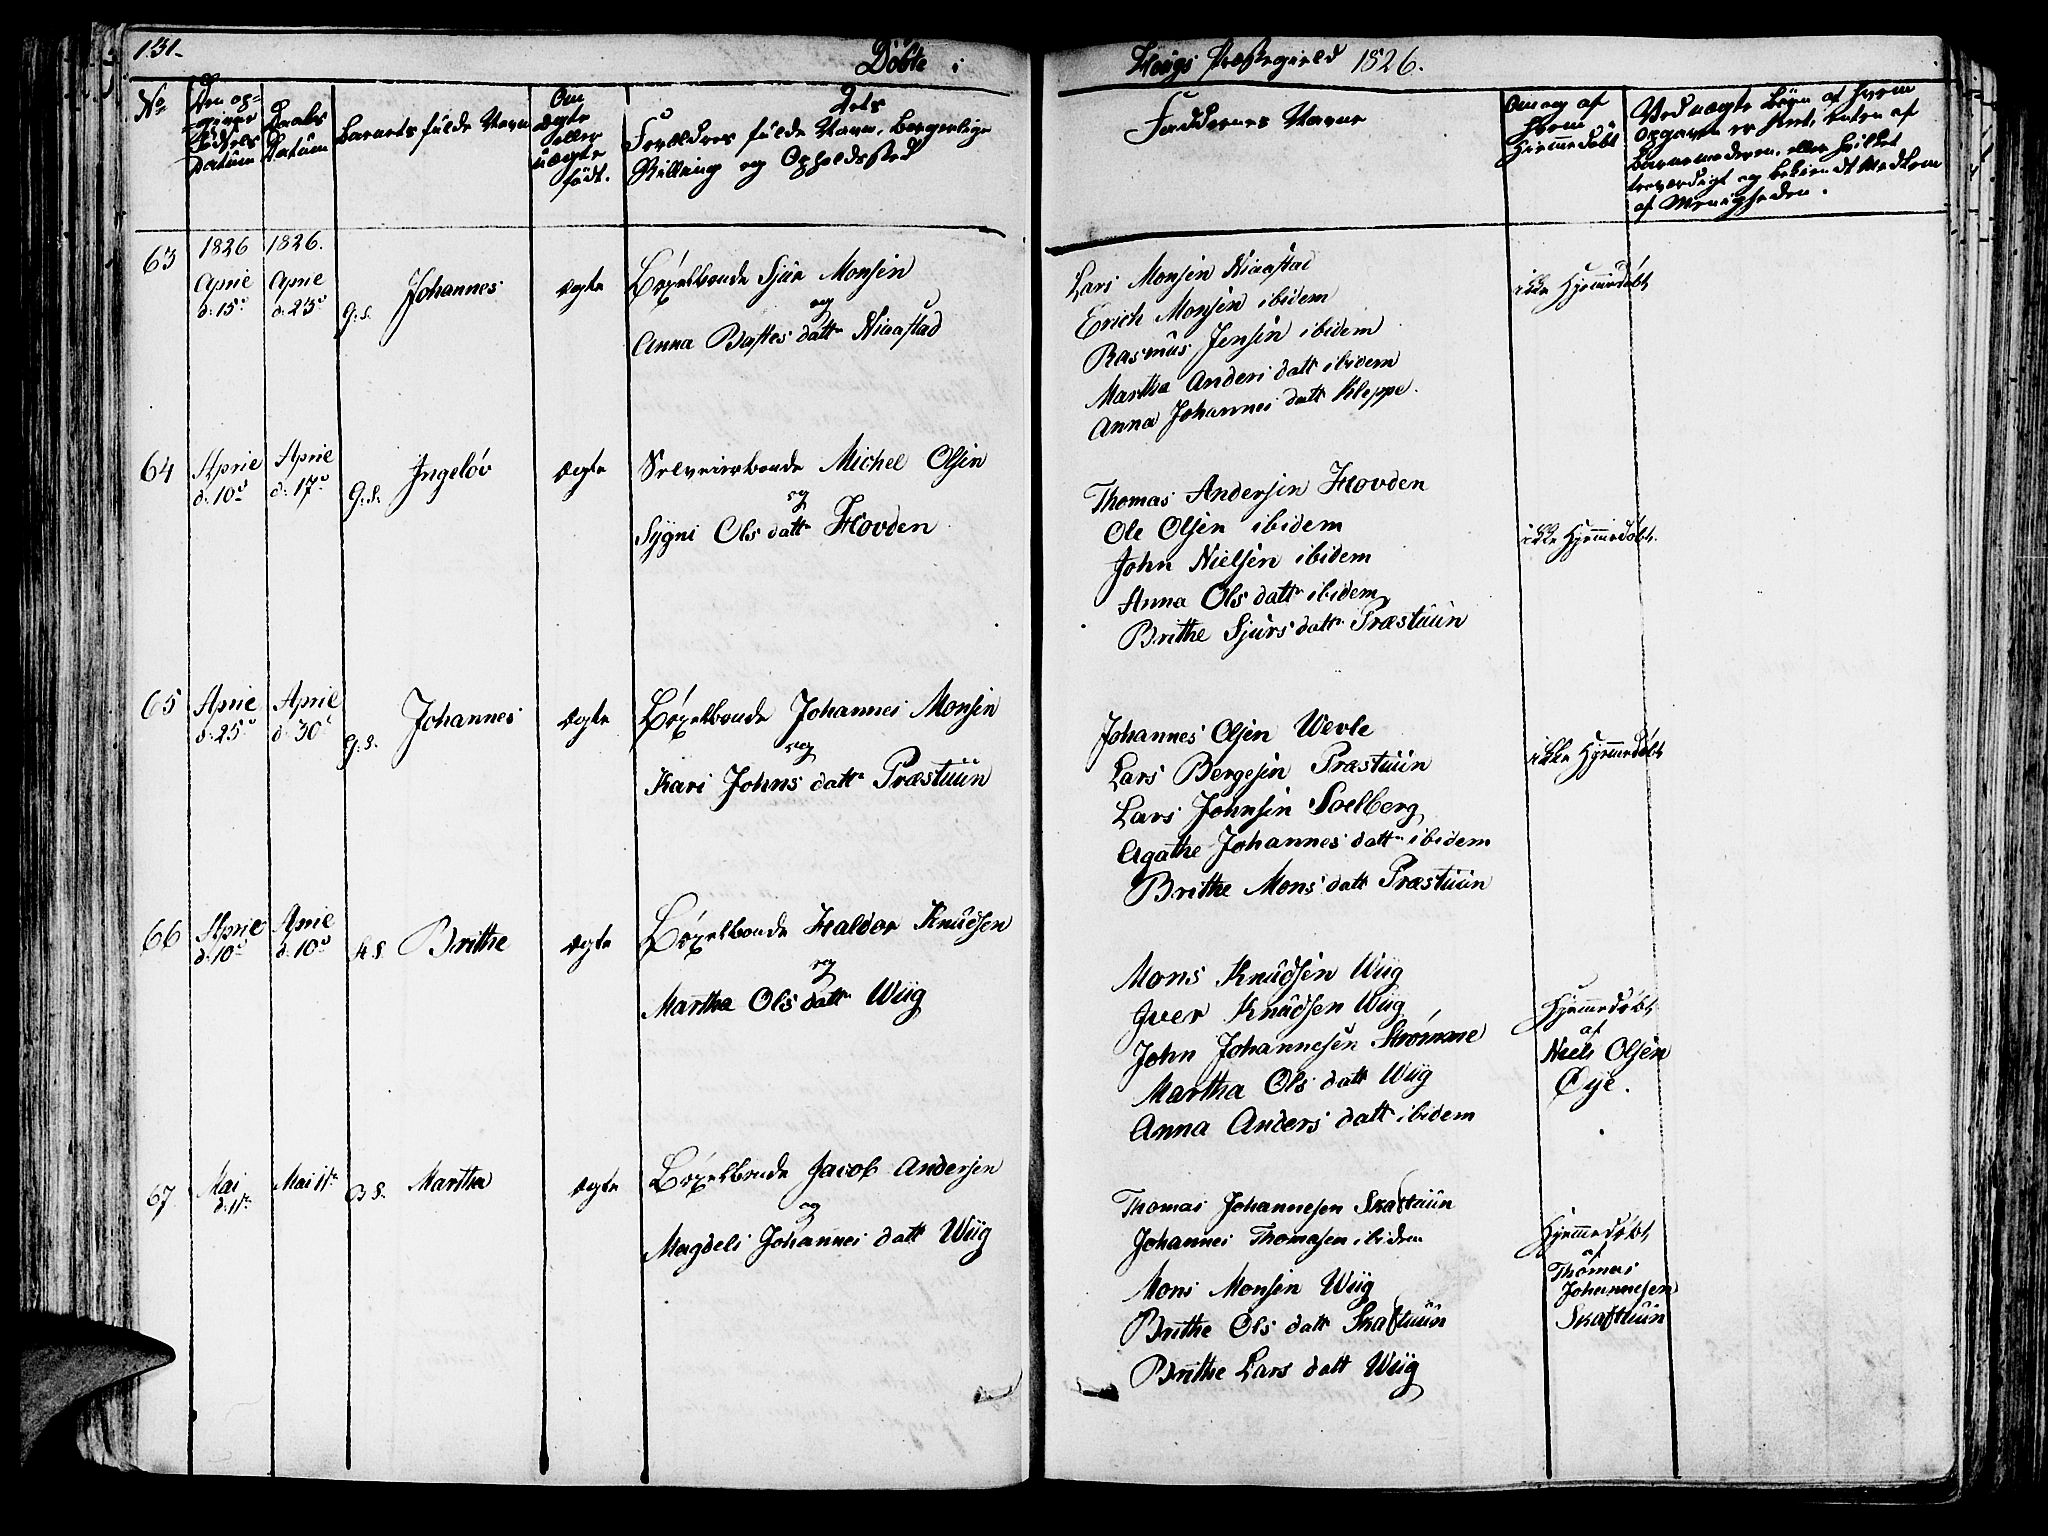 131.
Döbte i
Hougs Præstegield 1826.
No
Den op-
givne
Födsels
Datum
Daabs
Datum
Barnets fulde Navn
Om
ægte
eller
uægte
födt.
Dets
Forældres fulde Navn, borgerlige
Stilling og Opholdssted
Faddernes Navne
Om og af
hvem
hiemmedöbt
Ved uægte Börn af hvem
Opgaven er skeet, enten af
Barnemoderen, eller hvilket
troværdigt og bekiendt Medlem
af Menigheden.
63
1826
April
d: 15de
1826.
April
d: 23de
G. S.
Johannes
ægte
Böxelbonde Sjur Monsen
og
Anna datter Niaastad
Lars Monsen Niaastad
Erich Monsen ibidem
Rasmus Jensen ibidem
Martha Anders datter ibidem
Anna Johannes datter Kleppe.
ikke Hjemmedöbt
64
April
d: 10de
April
d: 17de
G. S.
Ingelöv
ægte
Selveierbonde Michel Olsen
og
Sygni Ols datter Hovden
Thomas Andersen Hovden
Ole Olsen ibidem
John Nielsen ibidem
Anna Ols datter ibidem
Brithe Sjurs datter Præstuun
ikke Hjemmedöbt.
65
April
d: 25de
April
d: 30te
G. S.
Johannes
ægte
Böxelbonde Johannes Monsen
og
Kari Johns datter Præstuun
Johannes Olsen Wevle
Lars Bergesen Præstuun
Lars Johnsen Soelberg
Agathe Johannes datter ibidem
Brithe Mons datter Præstuun
ikke Hjemmedöbt
66
April
d: 10de
April
d: 10de
H. S.
Brithe
ægte
Böxelbonde Haldor Knudsen
og
Martha Ols datter Wiig
Mons Knudsen Wiig
Iver Knudsen Wiig
John Johannesen Strömme
Martha Ols datter Wiig
Anna Anders datter ibidem
Hjemmedöbt
af
Niels Olsen
Øye.
67
Mai
d: 11te
Mai 11te
B S.
Martha
ægte
Böxelbonde Jacob Andersen
og
Magdeli Johannes datter Wiig
Thomas Johannesen Skaftuun
Johannes Thomasen ibidem
Mons Monsen Wiig
Brithe Ols datter Skaftuun
Brithe Lars datter Wiig
Hjemmedöbt
af
Thomas
Johannesen
Skaftuun